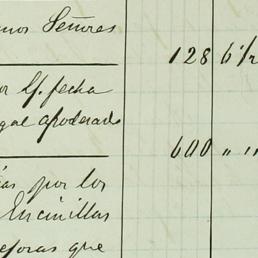 Señores
128 6 1/2
or Gl. fecha
gue apoderado
600 " "
ías por los
Encinillas
eforas que